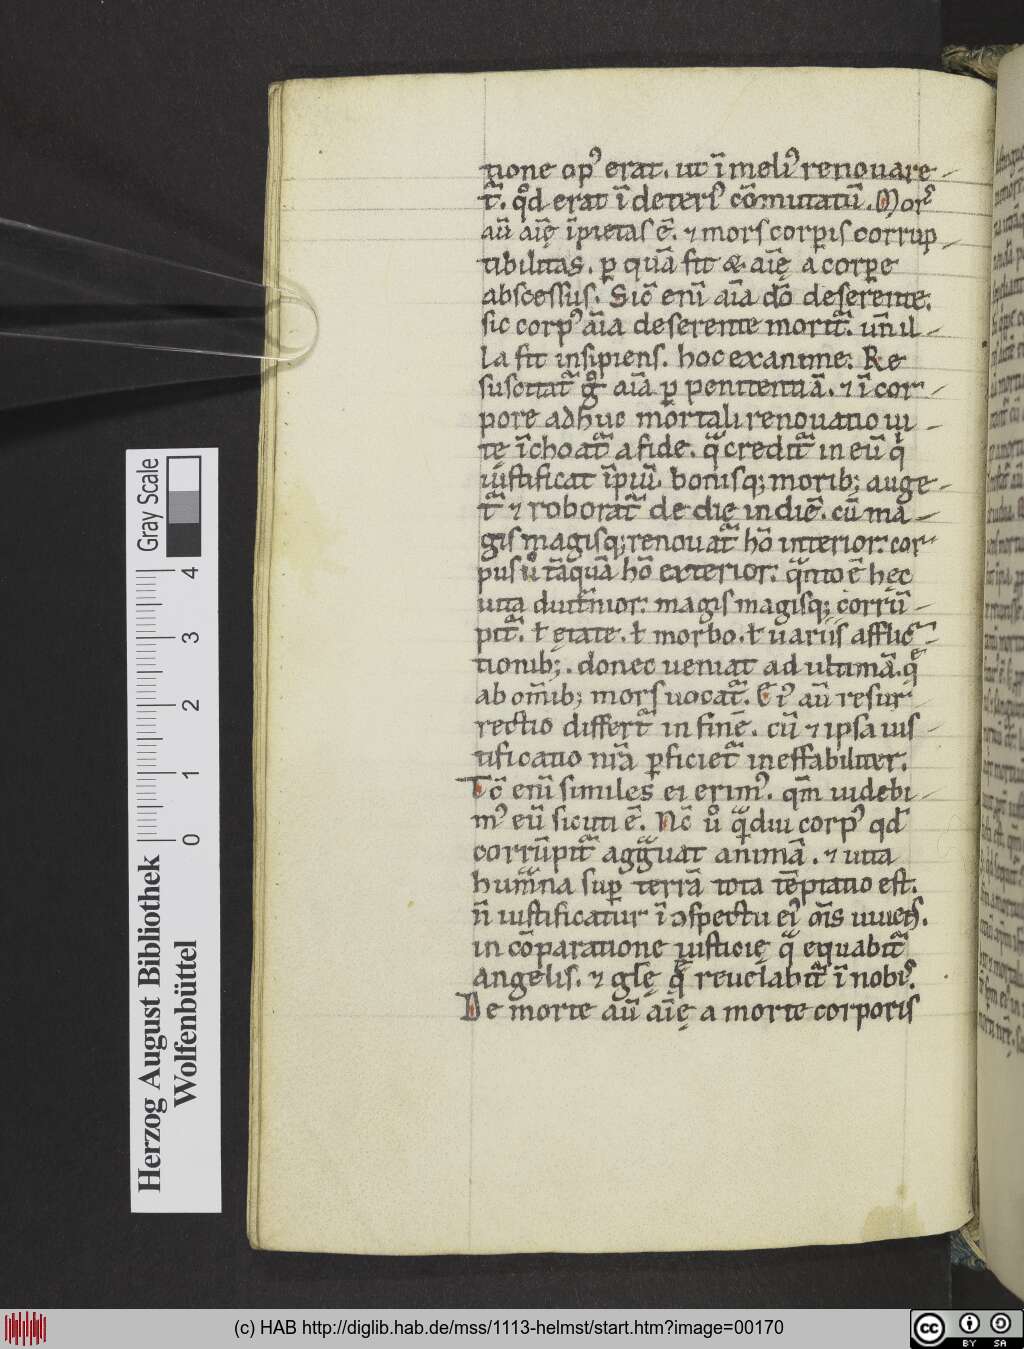 tione op᾽ erat. ut ī meli᾽ renouare-
t᷑. qd̊ erat ī deteri᾽ cōmutatū. Mors
aū aīę īpietas ē. ⁊ mors corꝑis corrup-
tibilitas. ꝑ quā fit & aīę a corpe
abscessus. Sic̄ enī aīa dō deserente.
sic corp᾽ aīa deserente morit᷑. un̄ il-
la fit insipiens. hoc exanime. Re
suscitat᷑ gͦ aīa ꝑ penitentiā. ⁊ ī cor-
pore adhuc mortali renouatio ui-
tę īchoat᷑ a fide. qͣ credit᷑ in eū qͥ
iustificat īpiū. bonisq; morib; auge-
t᷑ ⁊ roborat᷑ de die in diē. cū ma-
gis magisq; renouat᷑ hō interior. cor-
pus ů tāquā hō exterior. qͣnto ē hęc
uita diut̄nior. magis magisq; corrū-
pit᷑. ł ętate. ł morbo. ł uariis afflic-
tionib;. donec ueniat ad ultimā. qͤ
ab om̄ib; mors uocat᷑. Ei᾽ aū resur
rectio differt᷑ in finē. cū ⁊ ipsa ius-
tificatio nr̄a ꝑficiet᷑ ineffabiliter.
Tc̄ enī similes ei erim᾽. qm̄ uidebi-
m᾽ eū sicuti ē. Nc̄ ů qͣmdiu corp᾽ qd
corrūpit᷑ aggͣuat animā. ⁊ uita
humͣna suꝑ terrā tota tēptatio est.
n̄ iustificatur ī ↄspectu ei᾽ om̄s uiuēs.
in cōparatione iusticię qͣ equabit᷑
angelis. ⁊ glę qͤ reuelabit᷑ ī nobi᾽.
De morte aū aīę a morte corporis
Gray Scale
0 1 2 3 4
Herzog August Bibliothek
Wolfenbüttel
(c) HAB http://diglib.hab.de/mss/1113-helmst/start.htm?image=00170
cc BY SA